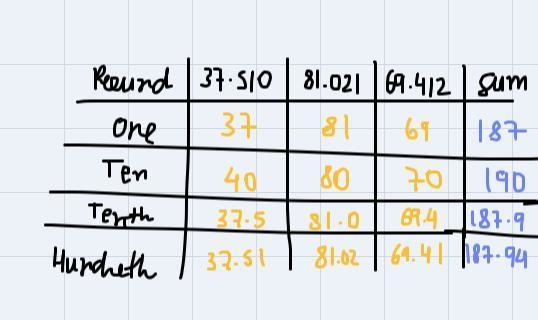 Round 37.510 81.021 69.412 Sum
One 37 81 69 187
Ten 40 80 70 190
Tenth 37.5 81.0 69.4 187.9
Hundreth 37.51 81.02 69.41 187.94